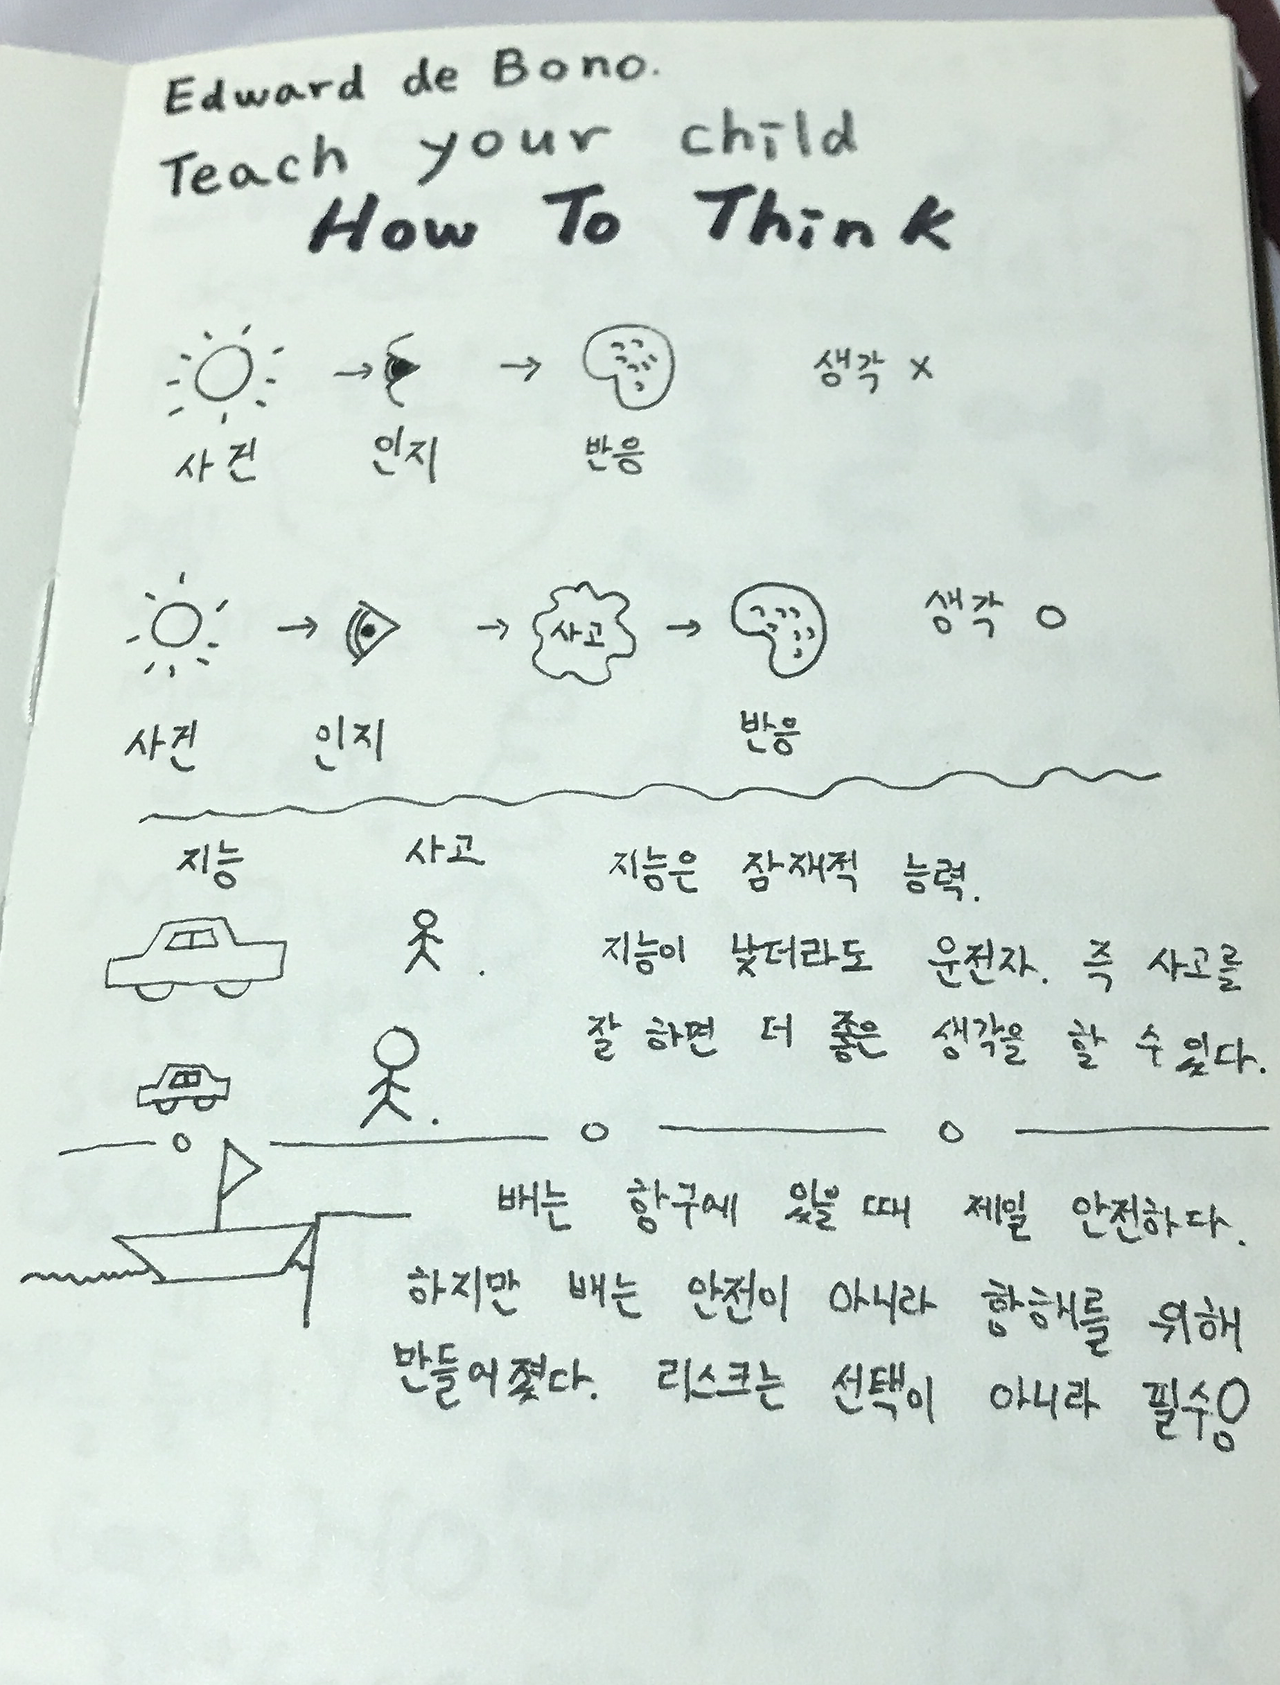 Edward de Bono.
Teach your child
How To Think
생각 x
사건 인지 반응
사고 생각 o
사건 인지 반응
지능 사고 지능은 잠재적 능력.
지능이 낮더라도 운전자. 즉 사고를
잘 하면 더 좋은 생각을 할 수 있다.
배는 항구에 있을 때 제일 안전하다.
하지만 배는 안전이 아니라 항해를 위해
만들어졌다. 리스크는 선택이 아니라 필수!